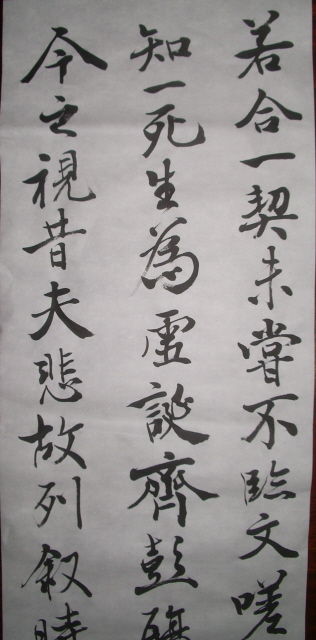 若合一契未嘗不臨文嗟
知一死生為虛誕齊彭殤
今之視昔夫悲故列叙時